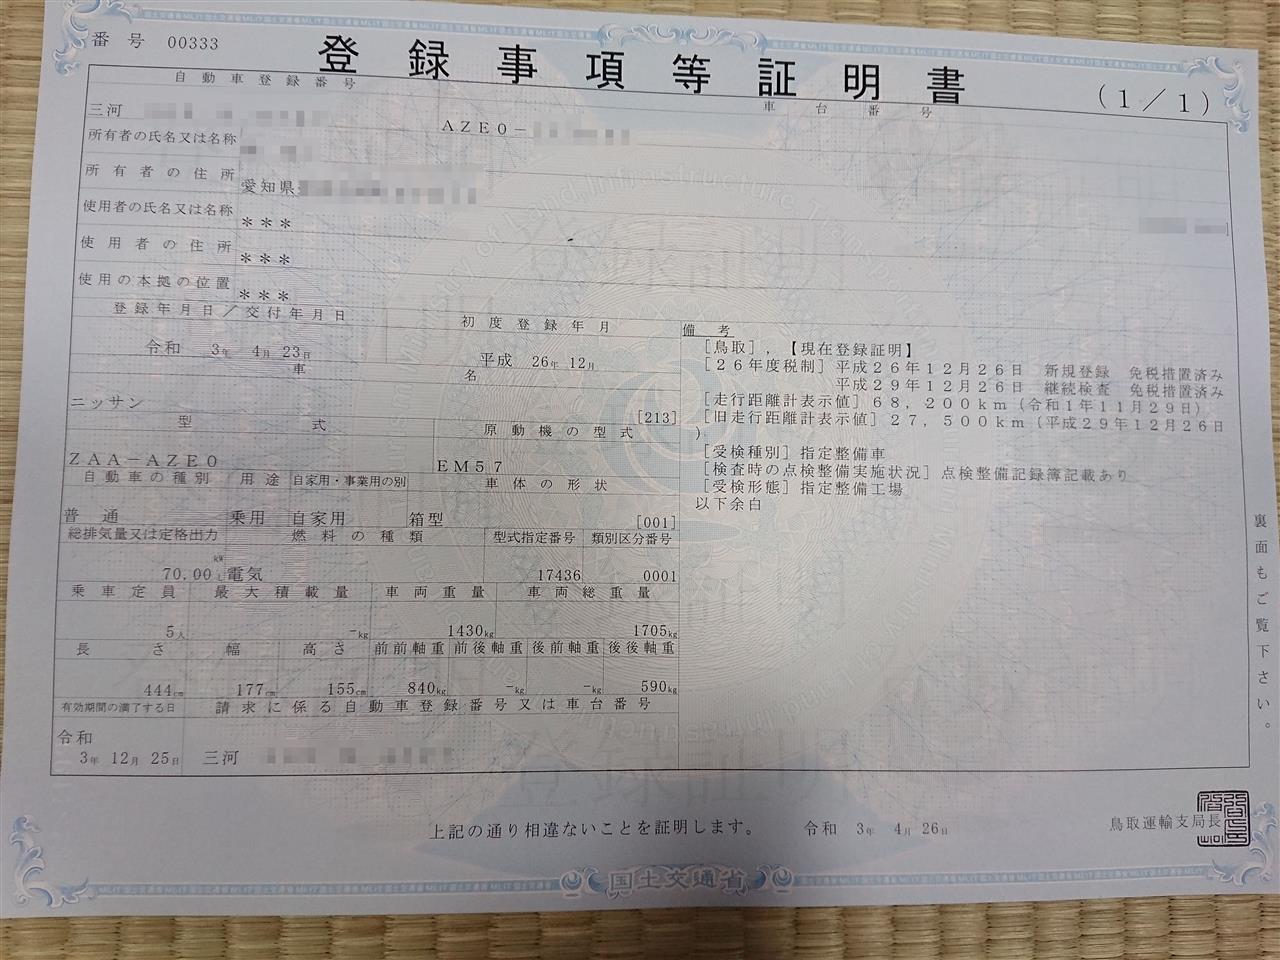 番号 00333
登録事項等証明書
(1/1)
自動車登録番号
車台番号
三河
AZE0-
所有者の氏名又は名称
所有者の住所
愛知県
使用者の氏名又は名称
***
使用者の住所
***
使用の本拠の位置
***
登録年月日/交付年月日
初度登録年月
令和 3年 4月 23日
平成 26年 12月
車名
ニッサン
[213]
型式
原動機の型式
ZAA-AZE0
EM57
自動車の種別 用途 自家用・事業用の別 車体の形状
普通 乗用 自家用 箱型 [001]
総排気量又は定格出力 燃料の種類 型式指定番号 類別区分番号
kW
70.00 L 電気 17436 0001
乗車定員 最大積載量 車両重量 車両総重量
5人 -kg 1430kg 1705kg
長さ 幅 高さ 前前軸重 前後軸重 後前軸重 後後軸重
444cm 177cm 155cm 840kg -kg -kg 590kg
有効期間の満了する日 請求に係る自動車登録番号又は車台番号
令和
3年 12月 25日 三河
備考
[鳥取],【現在登録証明】
[26年度税制]平成26年12月26日 新規登録 免税措置済み
平成29年12月26日 継続検査 免税措置済み
[走行距離計表示値]68,200km(令和1年11月29日)
[旧走行距離計表示値]27,500km(平成29年12月26日
)
[受検種別]指定整備車
[検査時の点検整備実施状況]点検整備記録簿記載あり
[受検形態]指定整備工場
以下余白
裏面もご覧下さい。
上記の通り相違ないことを証明します。 令和 3年 4月 26日
鳥取運輸支局長
国土交通省